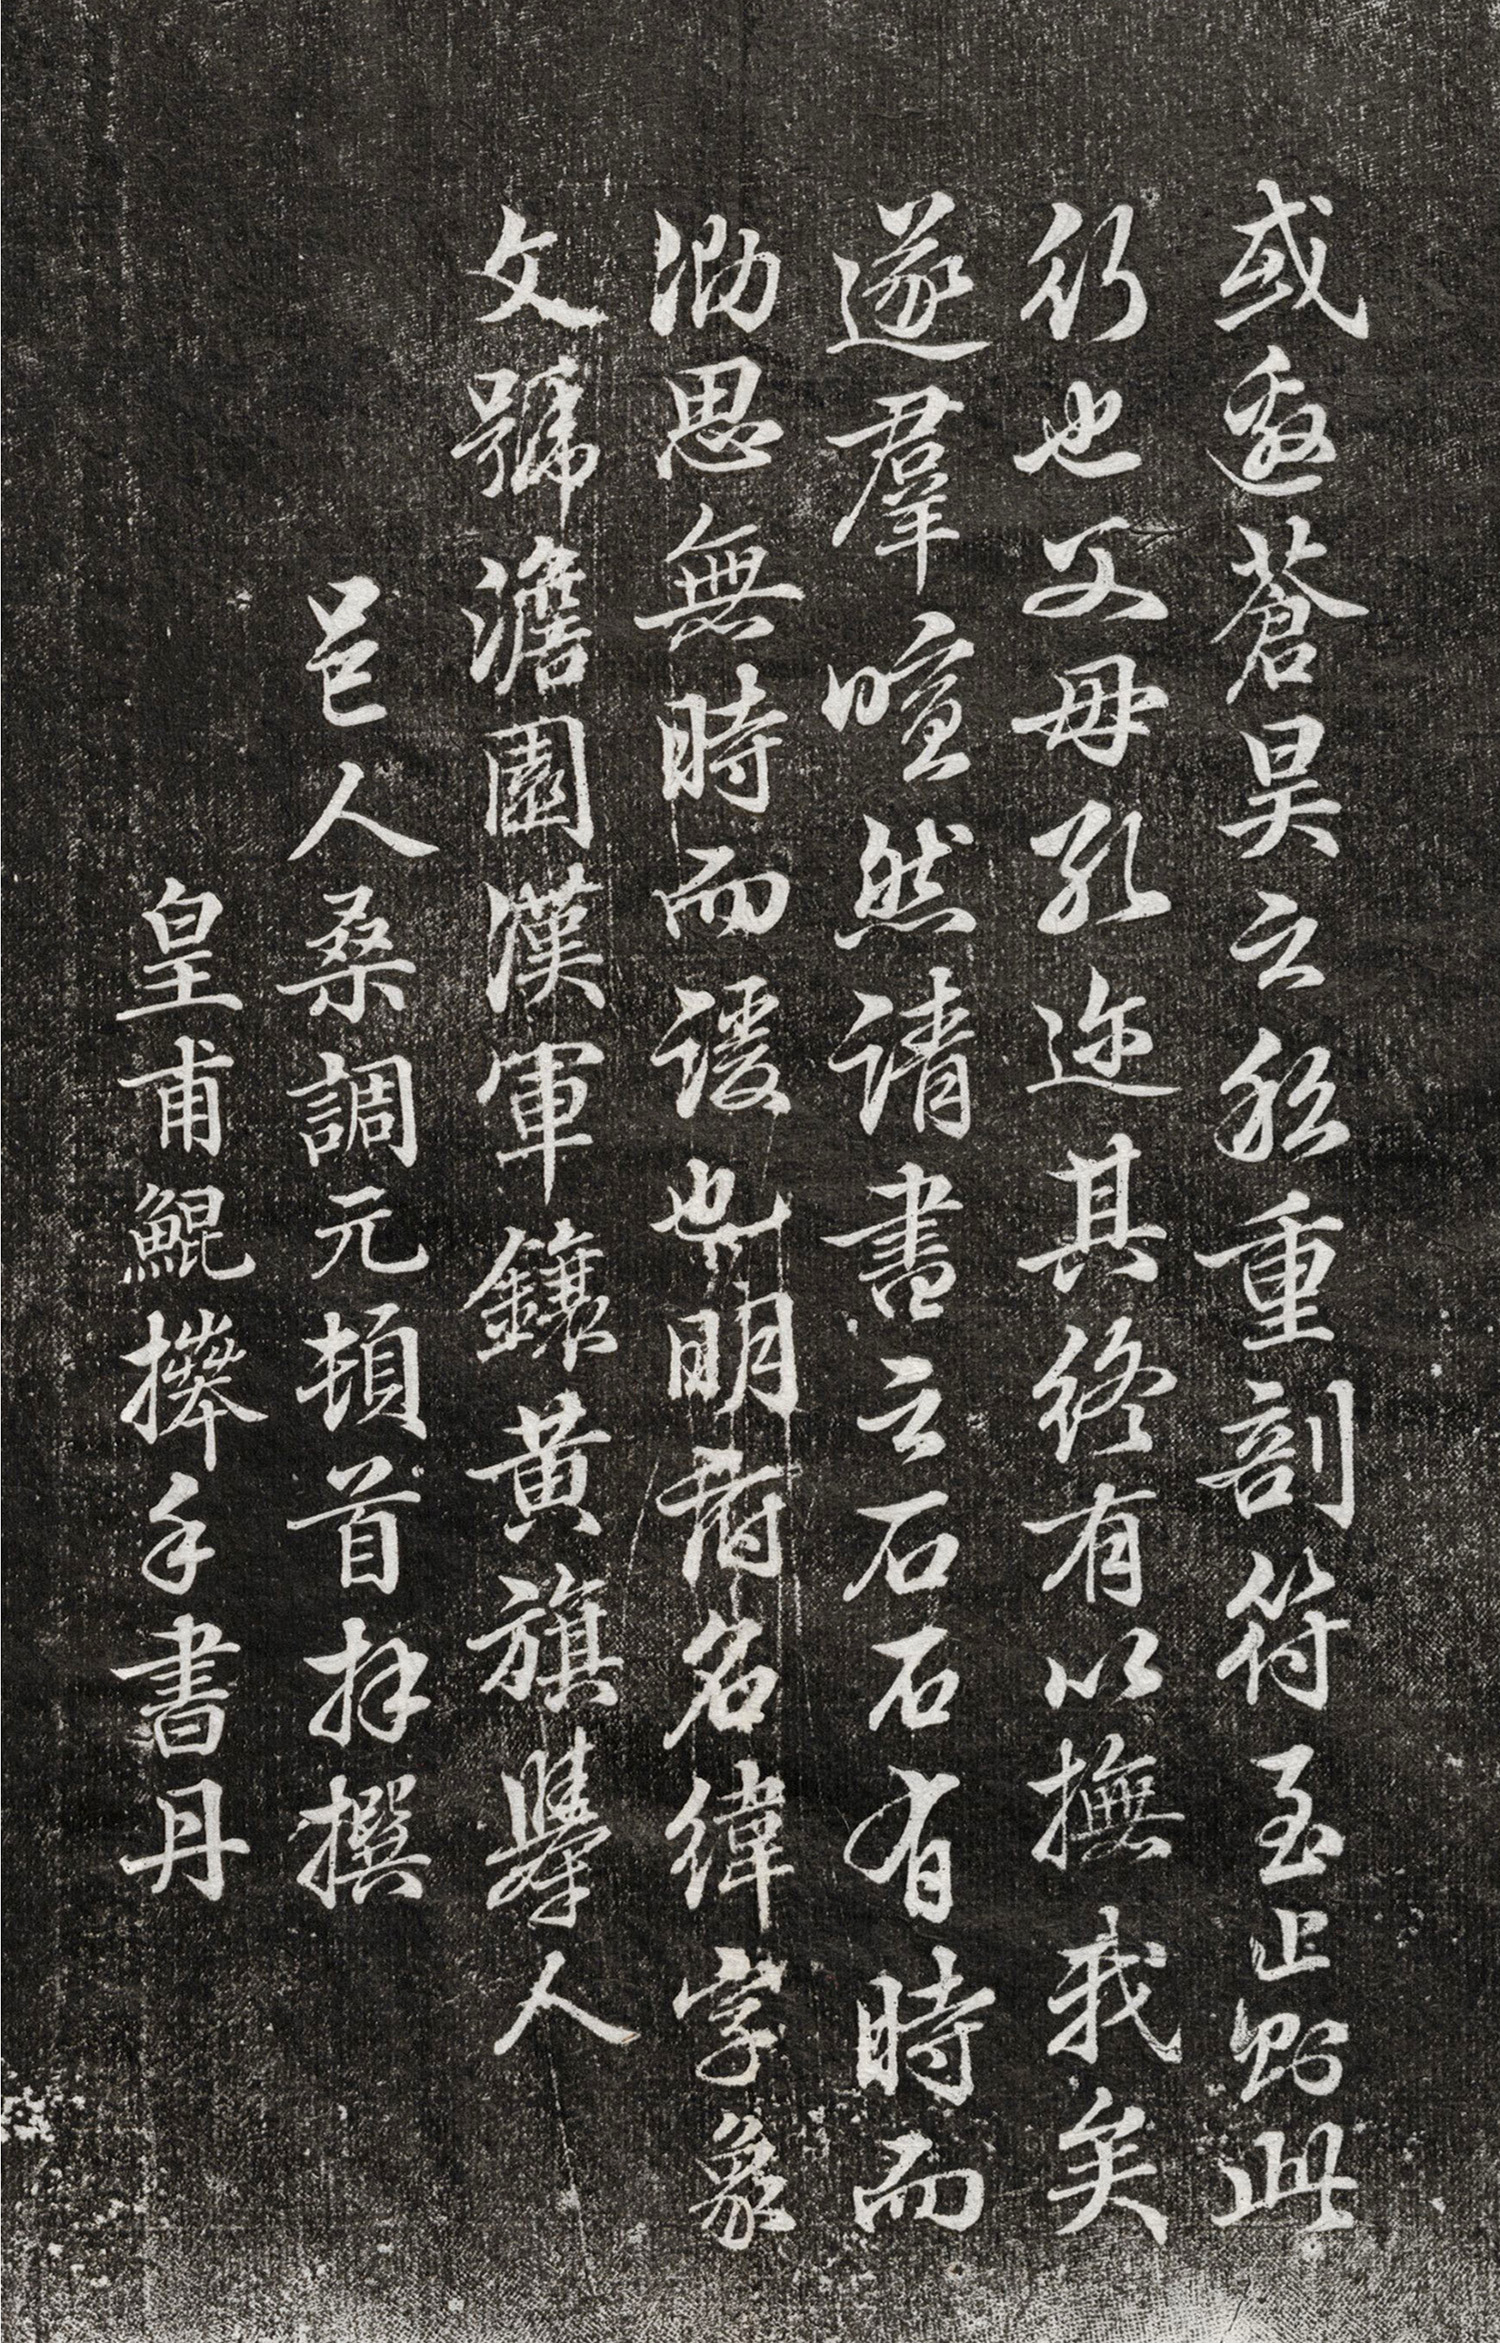 或邀蒼昊之於重剖符至止歟此
行也父母孔迩其終有以撫我矣
遂羣喧然請書之石石有時而
泐思無時而諼也明府名緯字象
文號澹園漢軍鑲黃旗舉人
邑人桑調元頓首拜撰
皇甫鯤擀手書丹